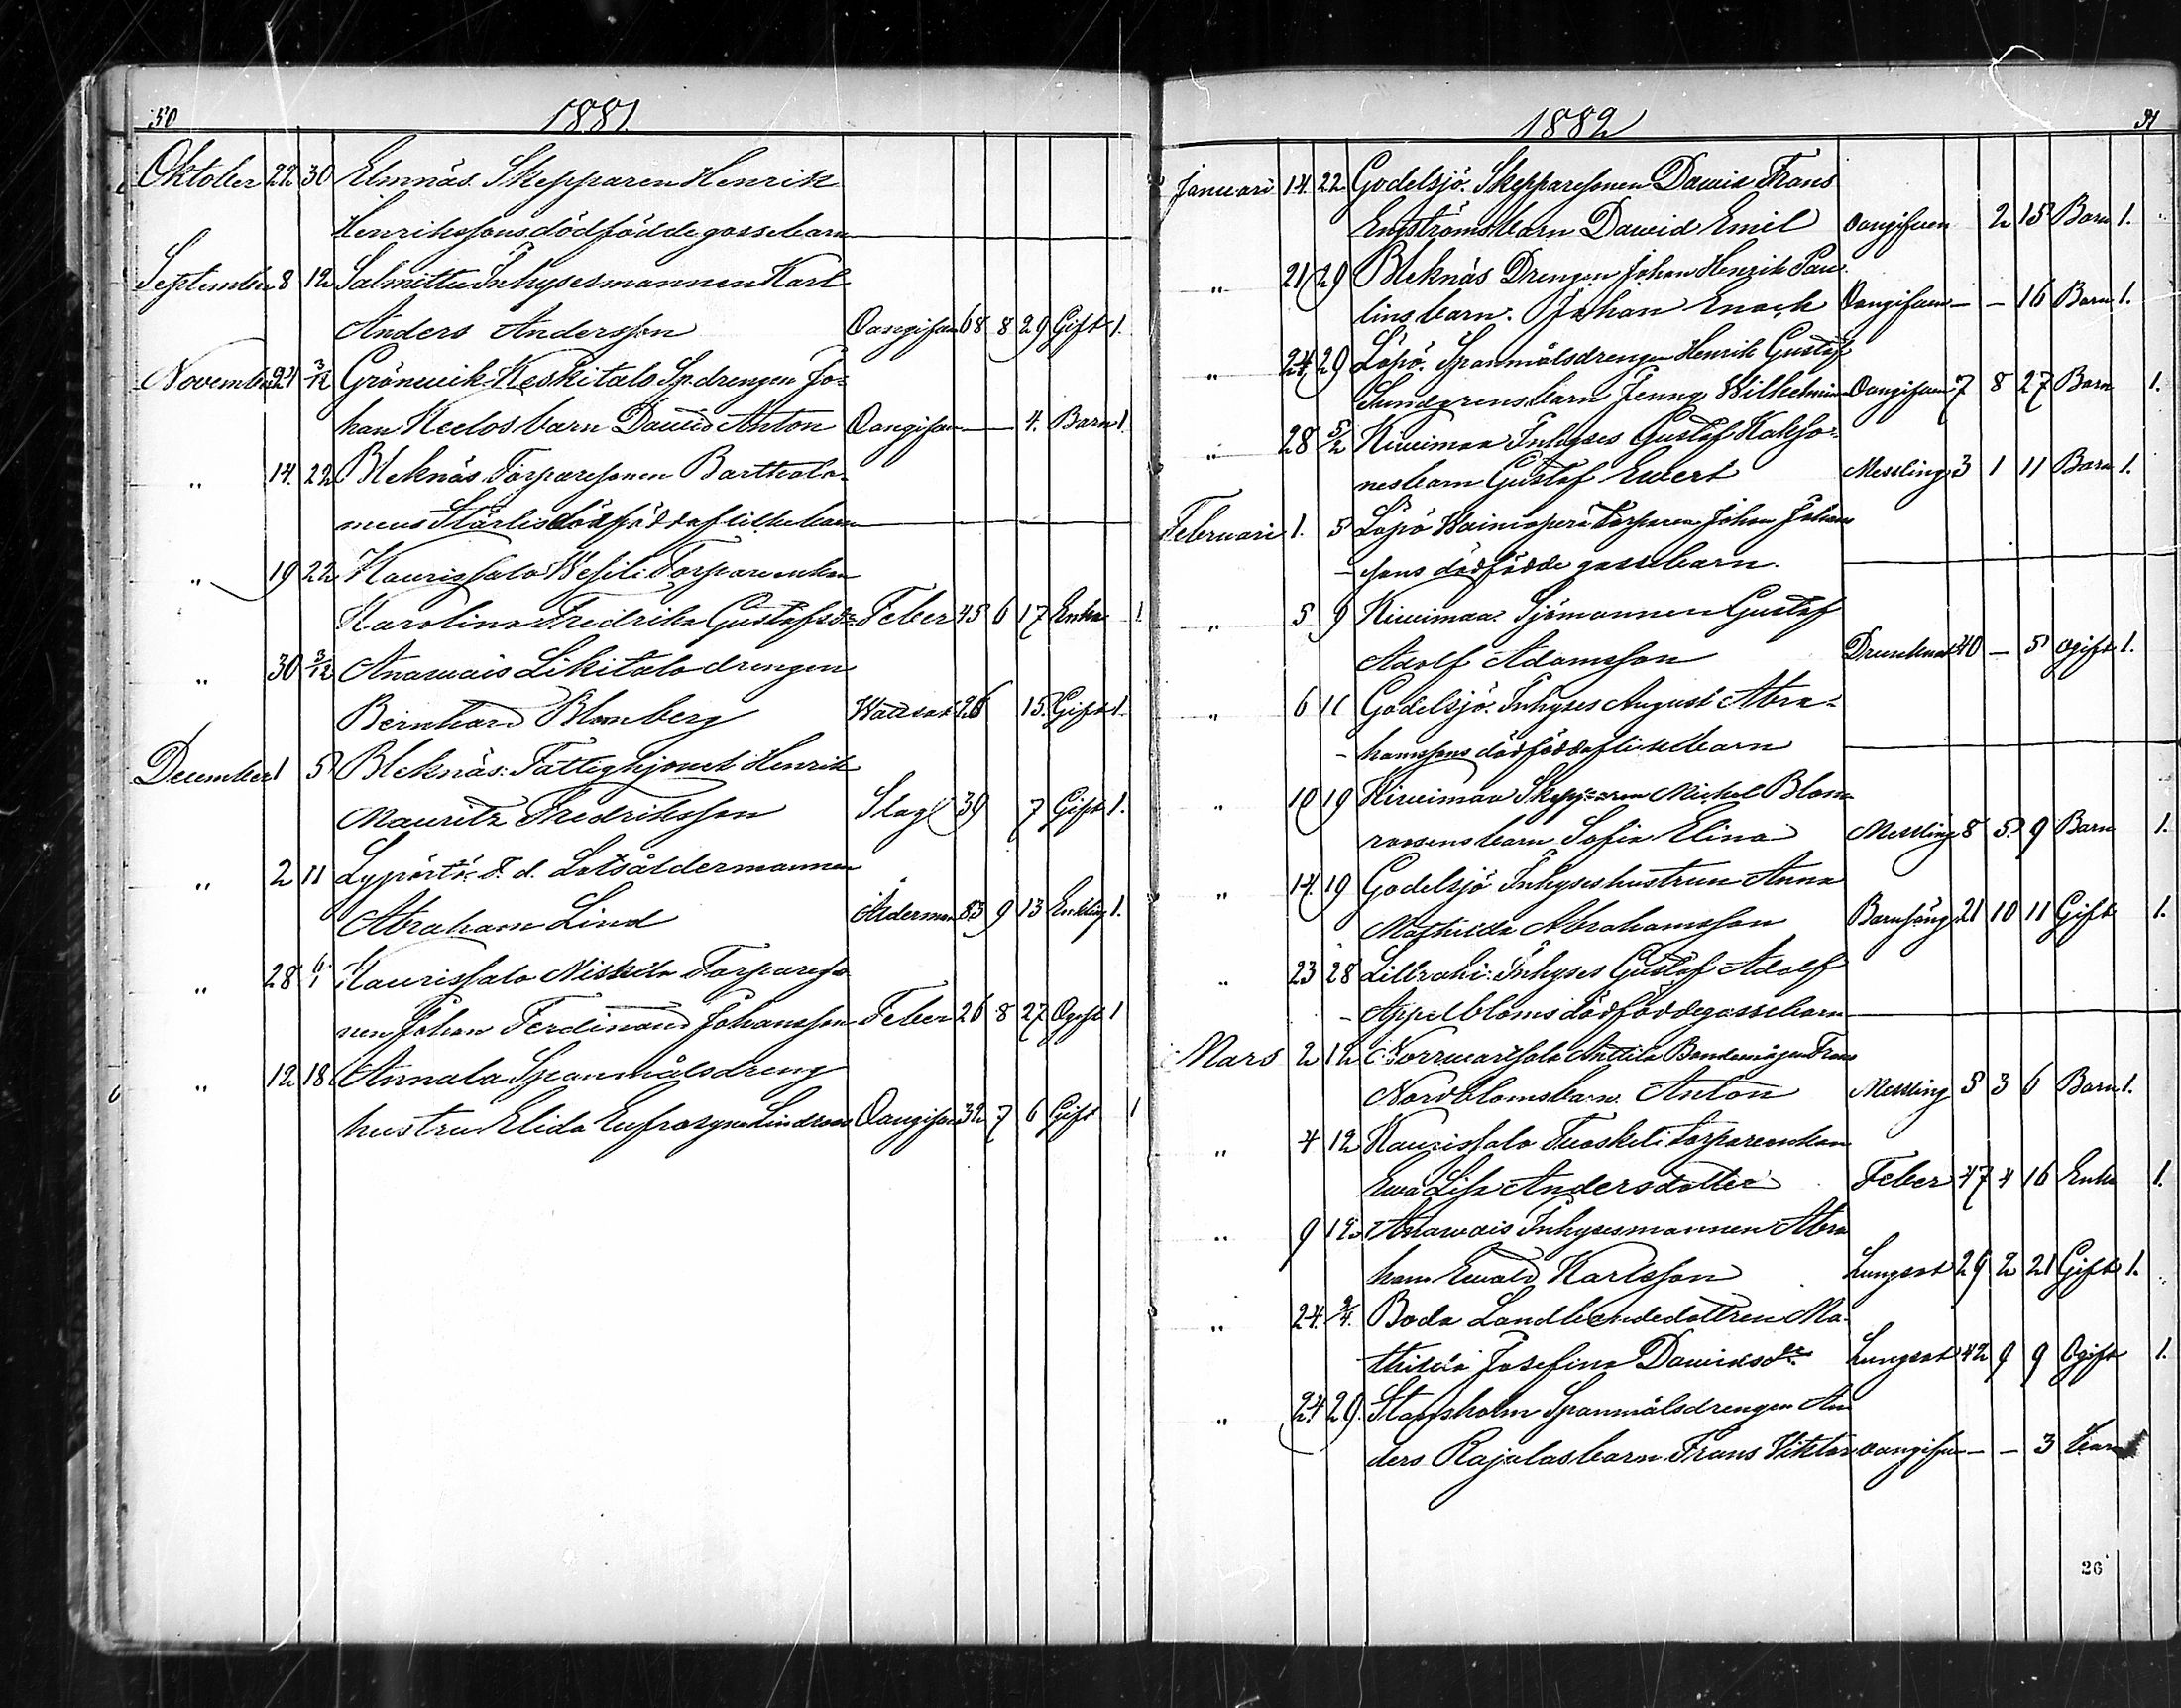 50
1881.
Oktober 22 30 Elmnäs. Skepparen Henrik
Henrikssons dödfödde gossebarn
September 8 12 Salmittu Inhysesmannen Karl
Anders Andersson Oangifven 68 8 29 Gift 1.
November 21 3/12 Grönevik Keskitalo Sp.drengen Jo=
han Heelos barn David Anton Oangifven — 4. Barn 1.
" 14. 22 Bleknäs Torparesonen Bartholo-
meus dödfödda flickebarn
" 19 22 Kaurissalo Wesili Torpareenkan
Karolina Fredrika Gustafsdr Feber 45 6 17 Enka 1
" 30 3/12 Anavais Likitalo drengen
Bernhard Blomberg Wattsot 26 15. Gift 1.
December 1 5 Bleknäs: Fattighjonet Henrik
Mauritz Fredriksson Slag 39 7 Gift 1.
" 2 11 Lypörtö. F. d. Lotsåldermannen
Abraham Lind Ålderdom 83 9 13 Enkling 1.
" 28 6/1 Kaurissalo Niskila Torpareso
nen Johan Ferdinand Johansson Feber 26 8 27 Ogift 1
" 12 18 Annala Spanmålsdreng
hustrun Elida Eufrosyne Lindroos Oangifven 32 7 6 Gift 1
1882
51
Januari 14. 22 Godelsjö. Skepparesonen David Frans
Engströms barn David Emil Oangifven 2 15 Barn 1.
" 21 29 Bleknäs Drengen Johan Henrik Pau-
lins barn. Johan Enock Oangifven — — 16 Barn 1.
" 24 29 Löpö. Spanmålsdrengen Henrik Gustaf
Sundgrens barn Jenny Wilhelmina Oangifven 7 8 27 Barn 1.
" 28 5/2 Kivimaa Inhyses Gustaf
barn Gustaf Evert Messling 3 1 11 Barn 1.
Februari 1. 5 Löpö Torparen Johan Johans
sons dödfödde gossebarn.
" 5 9 Kivimaa. Sjömannen Gustaf
Adolf Adamsson Drunknat 40 — 5 ogift 1.
" 6 11 Godelsjö. Inhyses August Abra-
hamssons dödfödda flickebarn
" 10 19 Kivimaa Skepparen Michel Blom
roosens barn Sofia Elina Messling 8 5 9 Barn 1.
" 14. 19 Godelsjö Inhyseshustrun Anna
Mathilda Abrahamsson Barnsäng 21 10 11 Gift 1.
" 23 28 Lillvaki: Inhyses Gustaf Adolf
Appelbloms dödfödde gossebarn
Mars 2 12 Norrvartsala Anttila Bondemågen Frans
Nordbloms barn Anton Messling 5 3 6 Barn 1.
" 4 12 Kaurissalo Tuoskeli torpareenkan
Eva Lisa Andersdotter Feber 47 4 16 Enka 1.
" 9 12 Anavais Inhysesmannen Abra
ham Evald Karlsson Lungsot 29 2 21 Gift 1.
" 24. 2/4. Boda Landbondedottren Ma-
thilda Josefina Davidsdr Lungsot 42 9 9 Ogift 1.
" 24 29. Stangsholm Spanmålsdrengen An
ders Rajalas barn Frans Viktor oangifven — — 3 barn
26